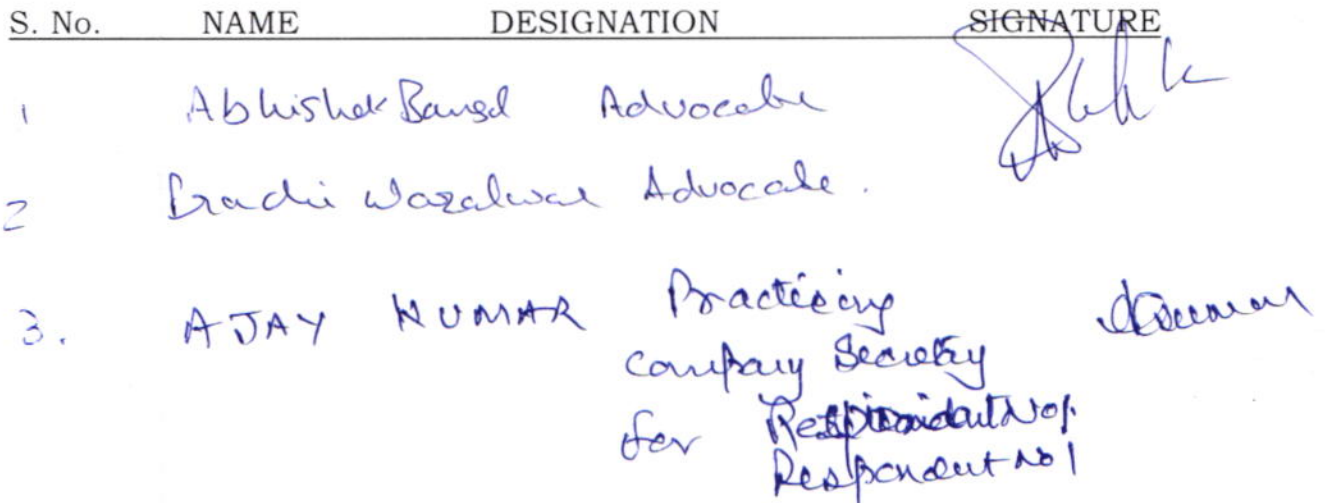 S. No. NAME DESIGNATION SIGNATURE
1 Abhishek Bansal Advocate
2 Prachi Wazalwar Advocate.
3. AJAY KUMAR Practicing
Company Secretary
for Respondent No 1.
Respondent No 1